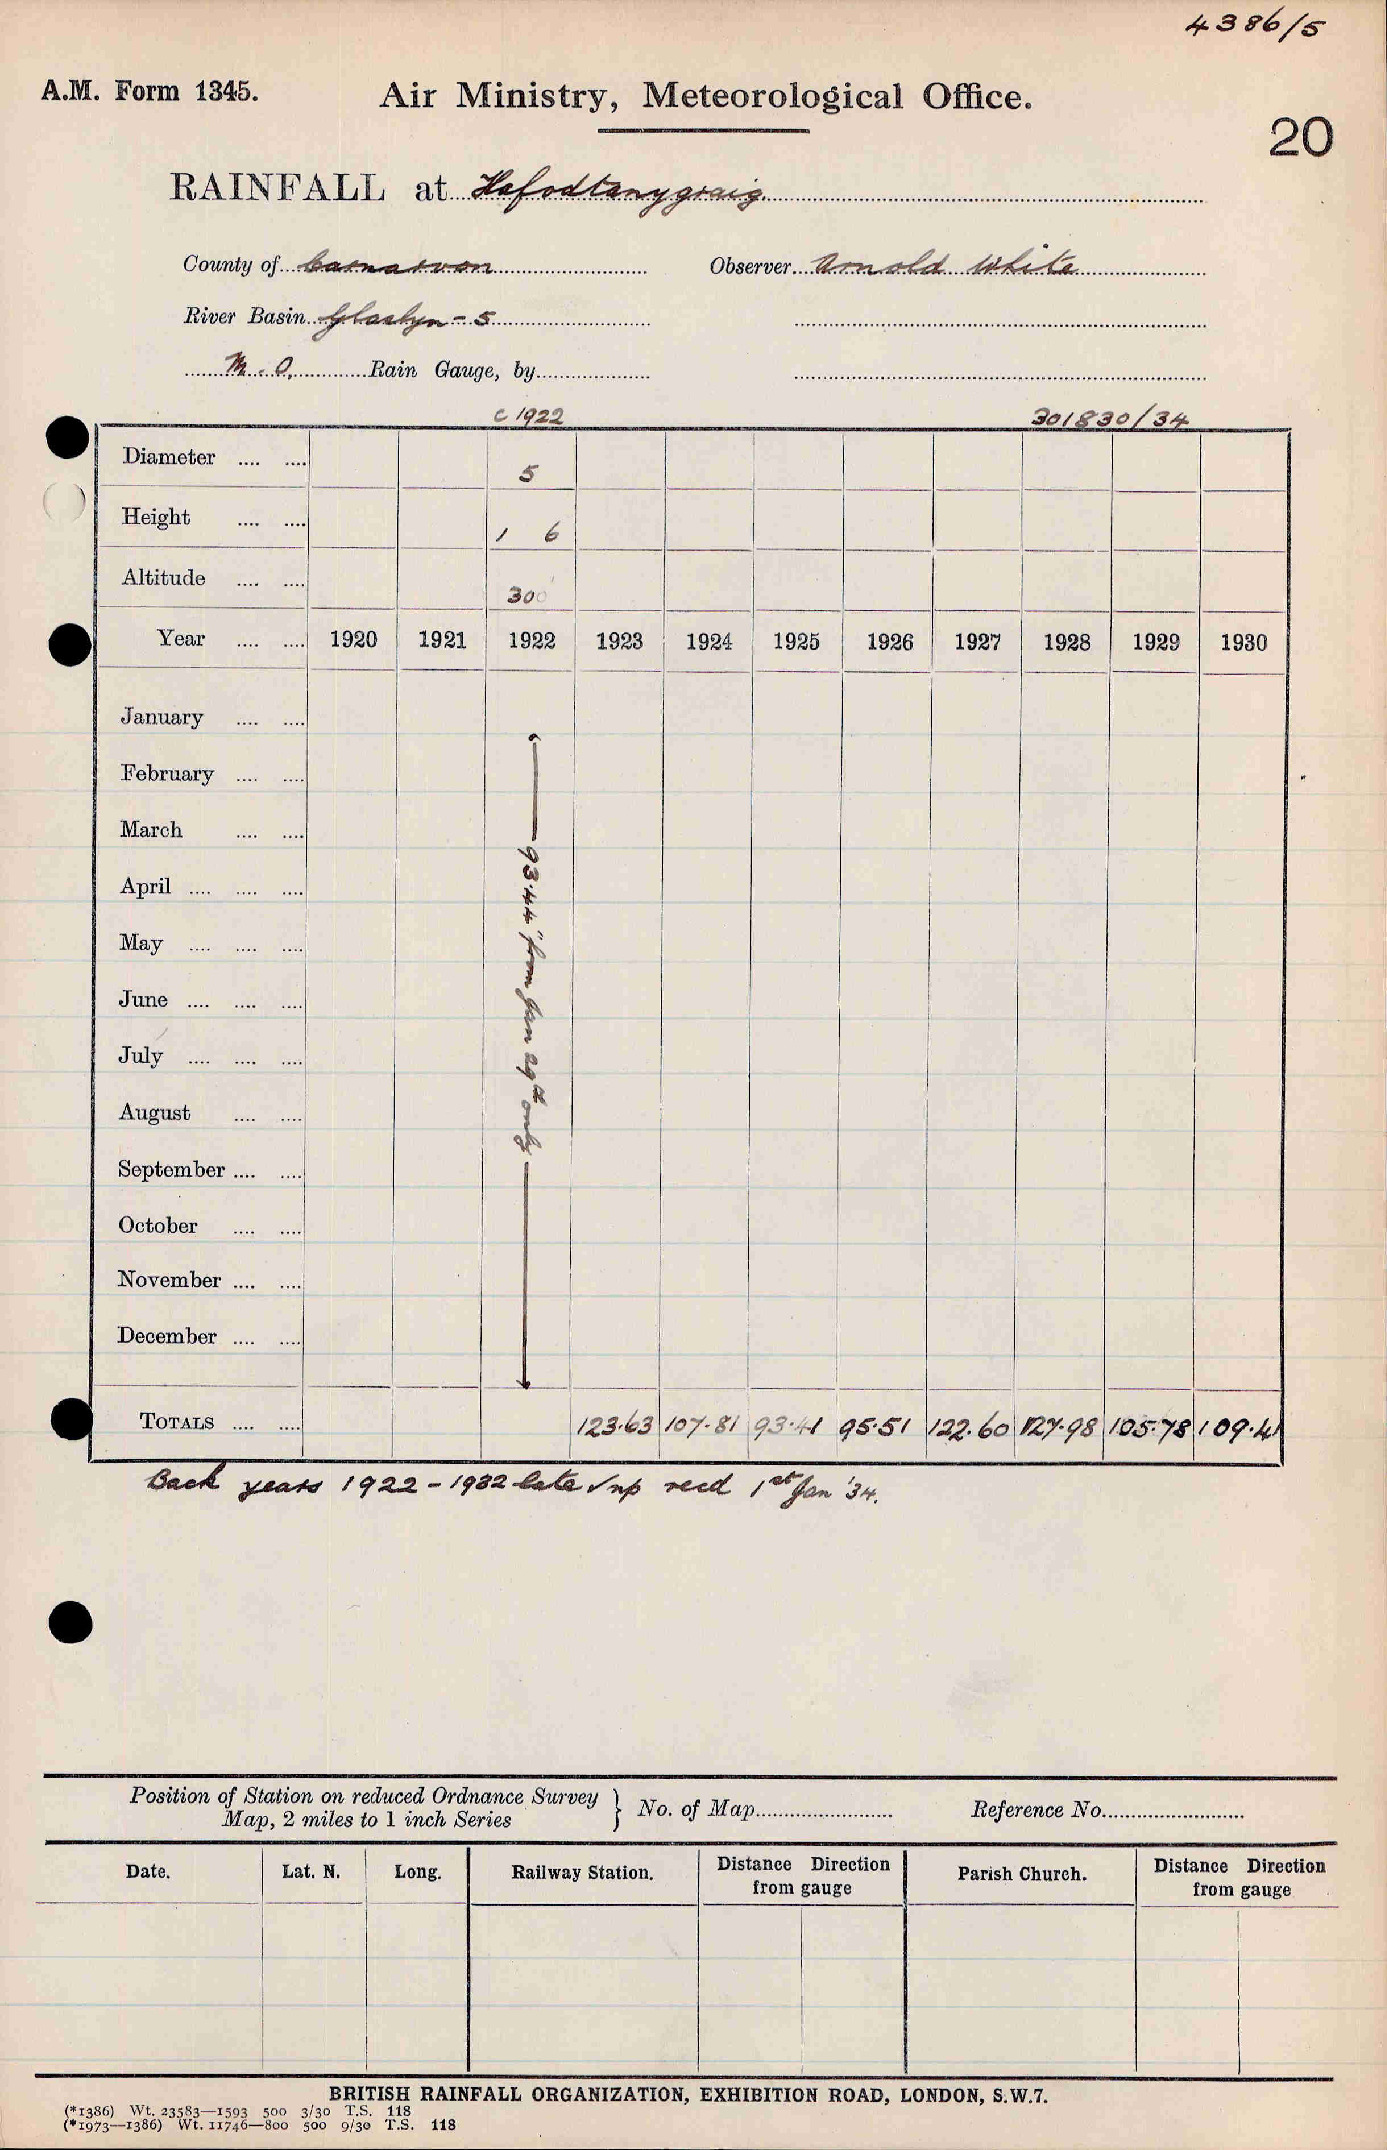 4386/5
A.M. Form 1345.
Air Ministry, Meteorological Office.
20
RAINFALL at Hafodtanygraig
County of Carnarvon Observer Arnold White
River Basin Glaslyn - 5
M.O. Rain Gauge, by
c 1922 301830/34
Diameter .... .... 5
Height .... .... 1 6
Altitude .... .... 300
Year .... .... 1920 1921 1922 1923 1924 1925 1926 1927 1928 1929 1930
January .... ....
February .... ....
March .... ....
April .... .... ....
May .... .... ....
June .... .... ....
July .... .... ....
August .... ....
September .... ....
October .... ....
November .... ....
December .... ....
93.44" from Jan 29th only
TOTALS .... .... 123.63 107.81 93.41 95.51 122.60 127.98 105.78 109.41
Back years 1922 - 1932 late np recd 1st Jan '34.
Position of Station on reduced Ordnance Survey
Map, 2 miles to 1 inch Series } No. of Map Reference No.
Date. Lat. N. Long. Railway Station. Distance Direction from gauge Parish Church. Distance Direction from gauge
BRITISH RAINFALL ORGANIZATION, EXHIBITION ROAD, LONDON, S.W.7.
(*1386) Wt. 23583—1593 500 3/30 T.S. 118
(*1973—1386) Wt. 11746—800 500 9/30 T.S. 118